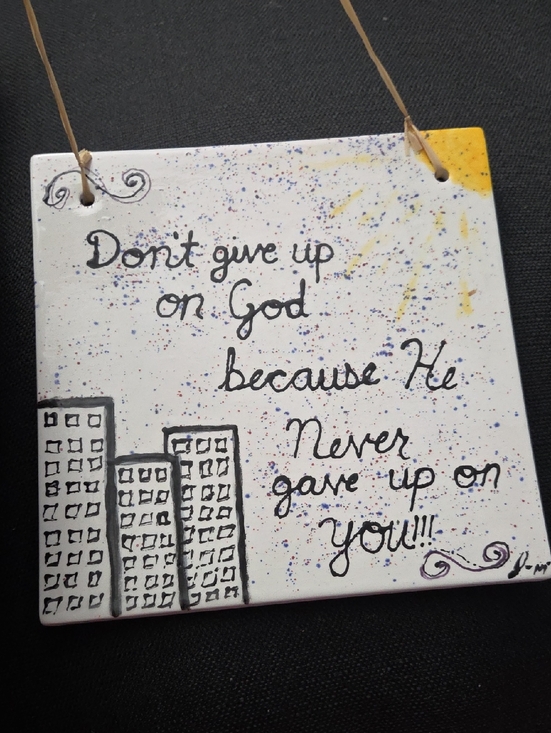 Don't give up
on God
because He
Never
gave up on
you!!!